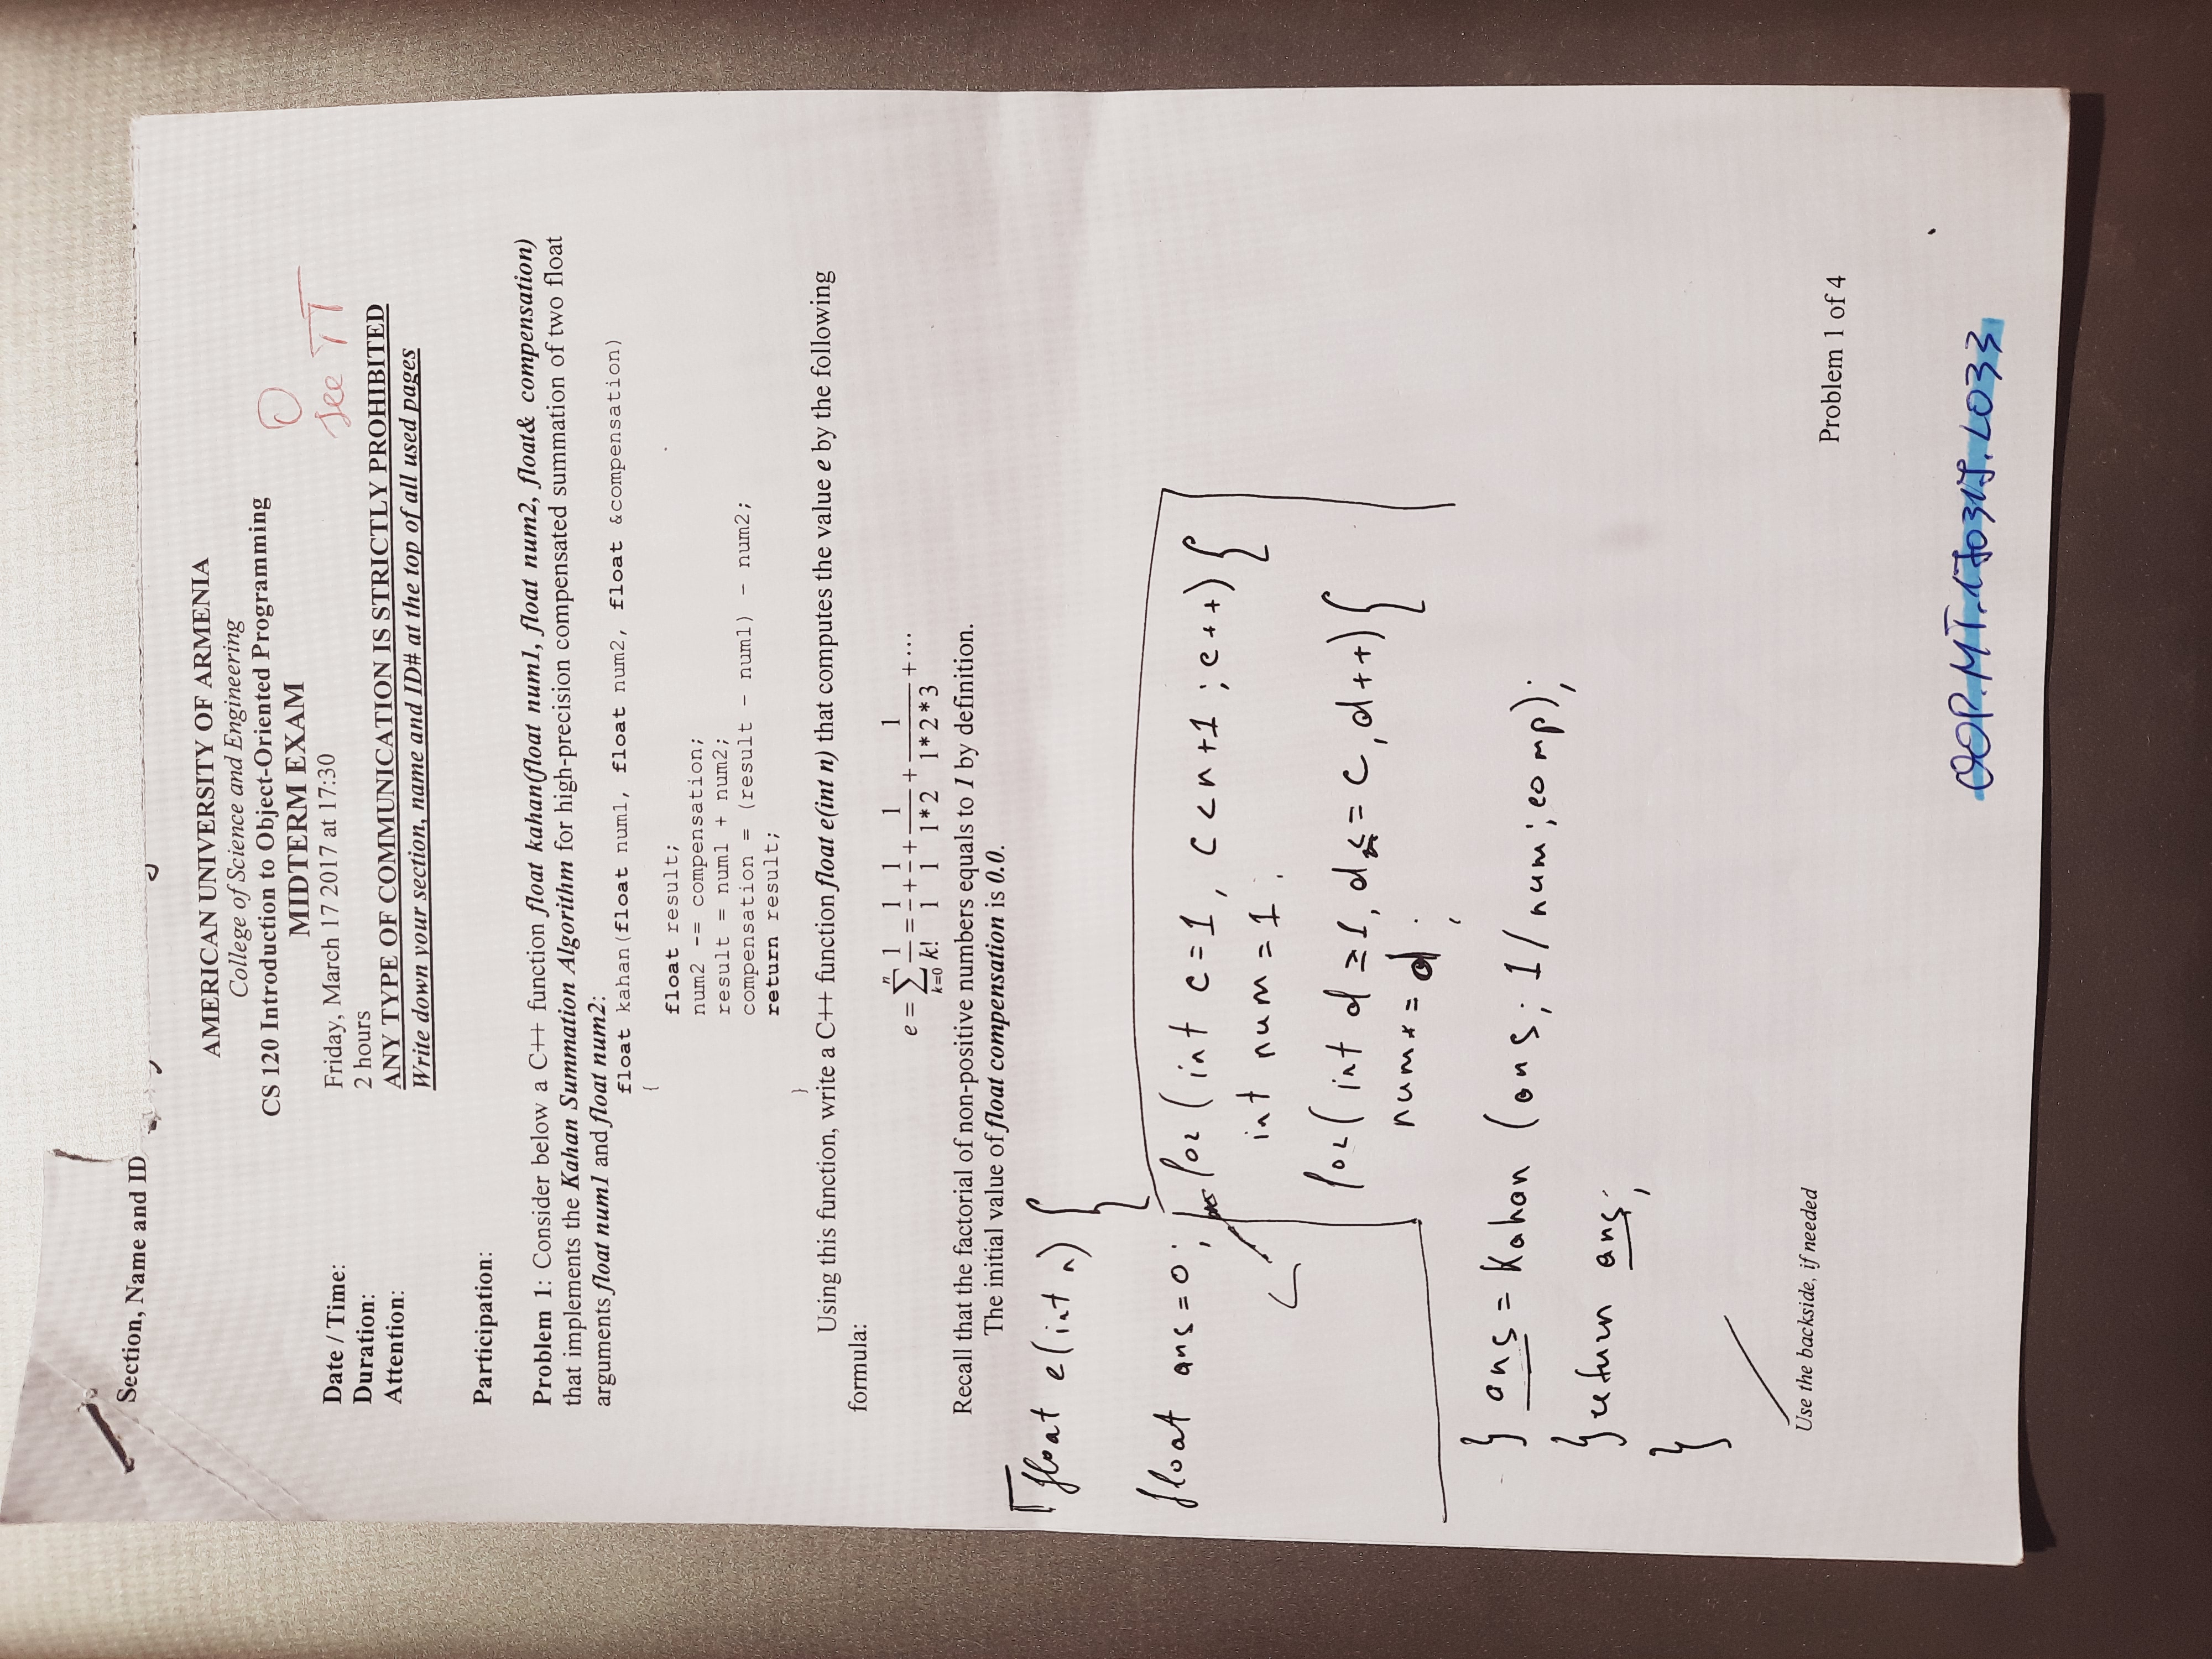 Section, Name and ID
AMERICAN UNIVERSITY OF ARMENIA
College of Science and Engineering
CS 120 Introduction to Object-Oriented Programming
MIDTERM EXAM
0
see TT
Date / Time: Friday, March 17 2017 at 17:30
Duration: 2 hours
Attention: ANY TYPE OF COMMUNICATION IS STRICTLY PROHIBITED
Write down your section, name and ID# at the top of all used pages
Participation:
Problem 1: Consider below a C++ function float kahan(float num1, float num2, float& compensation)
that implements the Kahan Summation Algorithm for high-precision compensated summation of two float
arguments float num1 and float num2:
float kahan(float num1, float num2, float &compensation)
{
float result;
num2 -= compensation;
result = num1 + num2;
compensation = (result - num1) - num2;
return result;
}
Using this function, write a C++ function float e(int n) that computes the value e by the following
formula:
e = ∑ₖ₌₀ⁿ 1/k! = 1/1 + 1/1 + 1/1*2 + 1/1*2*3 + ⋯
Recall that the factorial of non-positive numbers equals to 1 by definition.
The initial value of float compensation is 0.0.
float e(int n) {
float ans = 0; for (int c = 1, c < n+1 ; c++) {
int num = 1;
for (int d = 1, d <= c, d++) {
num *= d;
} ans = Kahan (ans; 1/num; comp);
} return ans;
}
Use the backside, if needed
Problem 1 of 4
OOP.MT.170317.L033